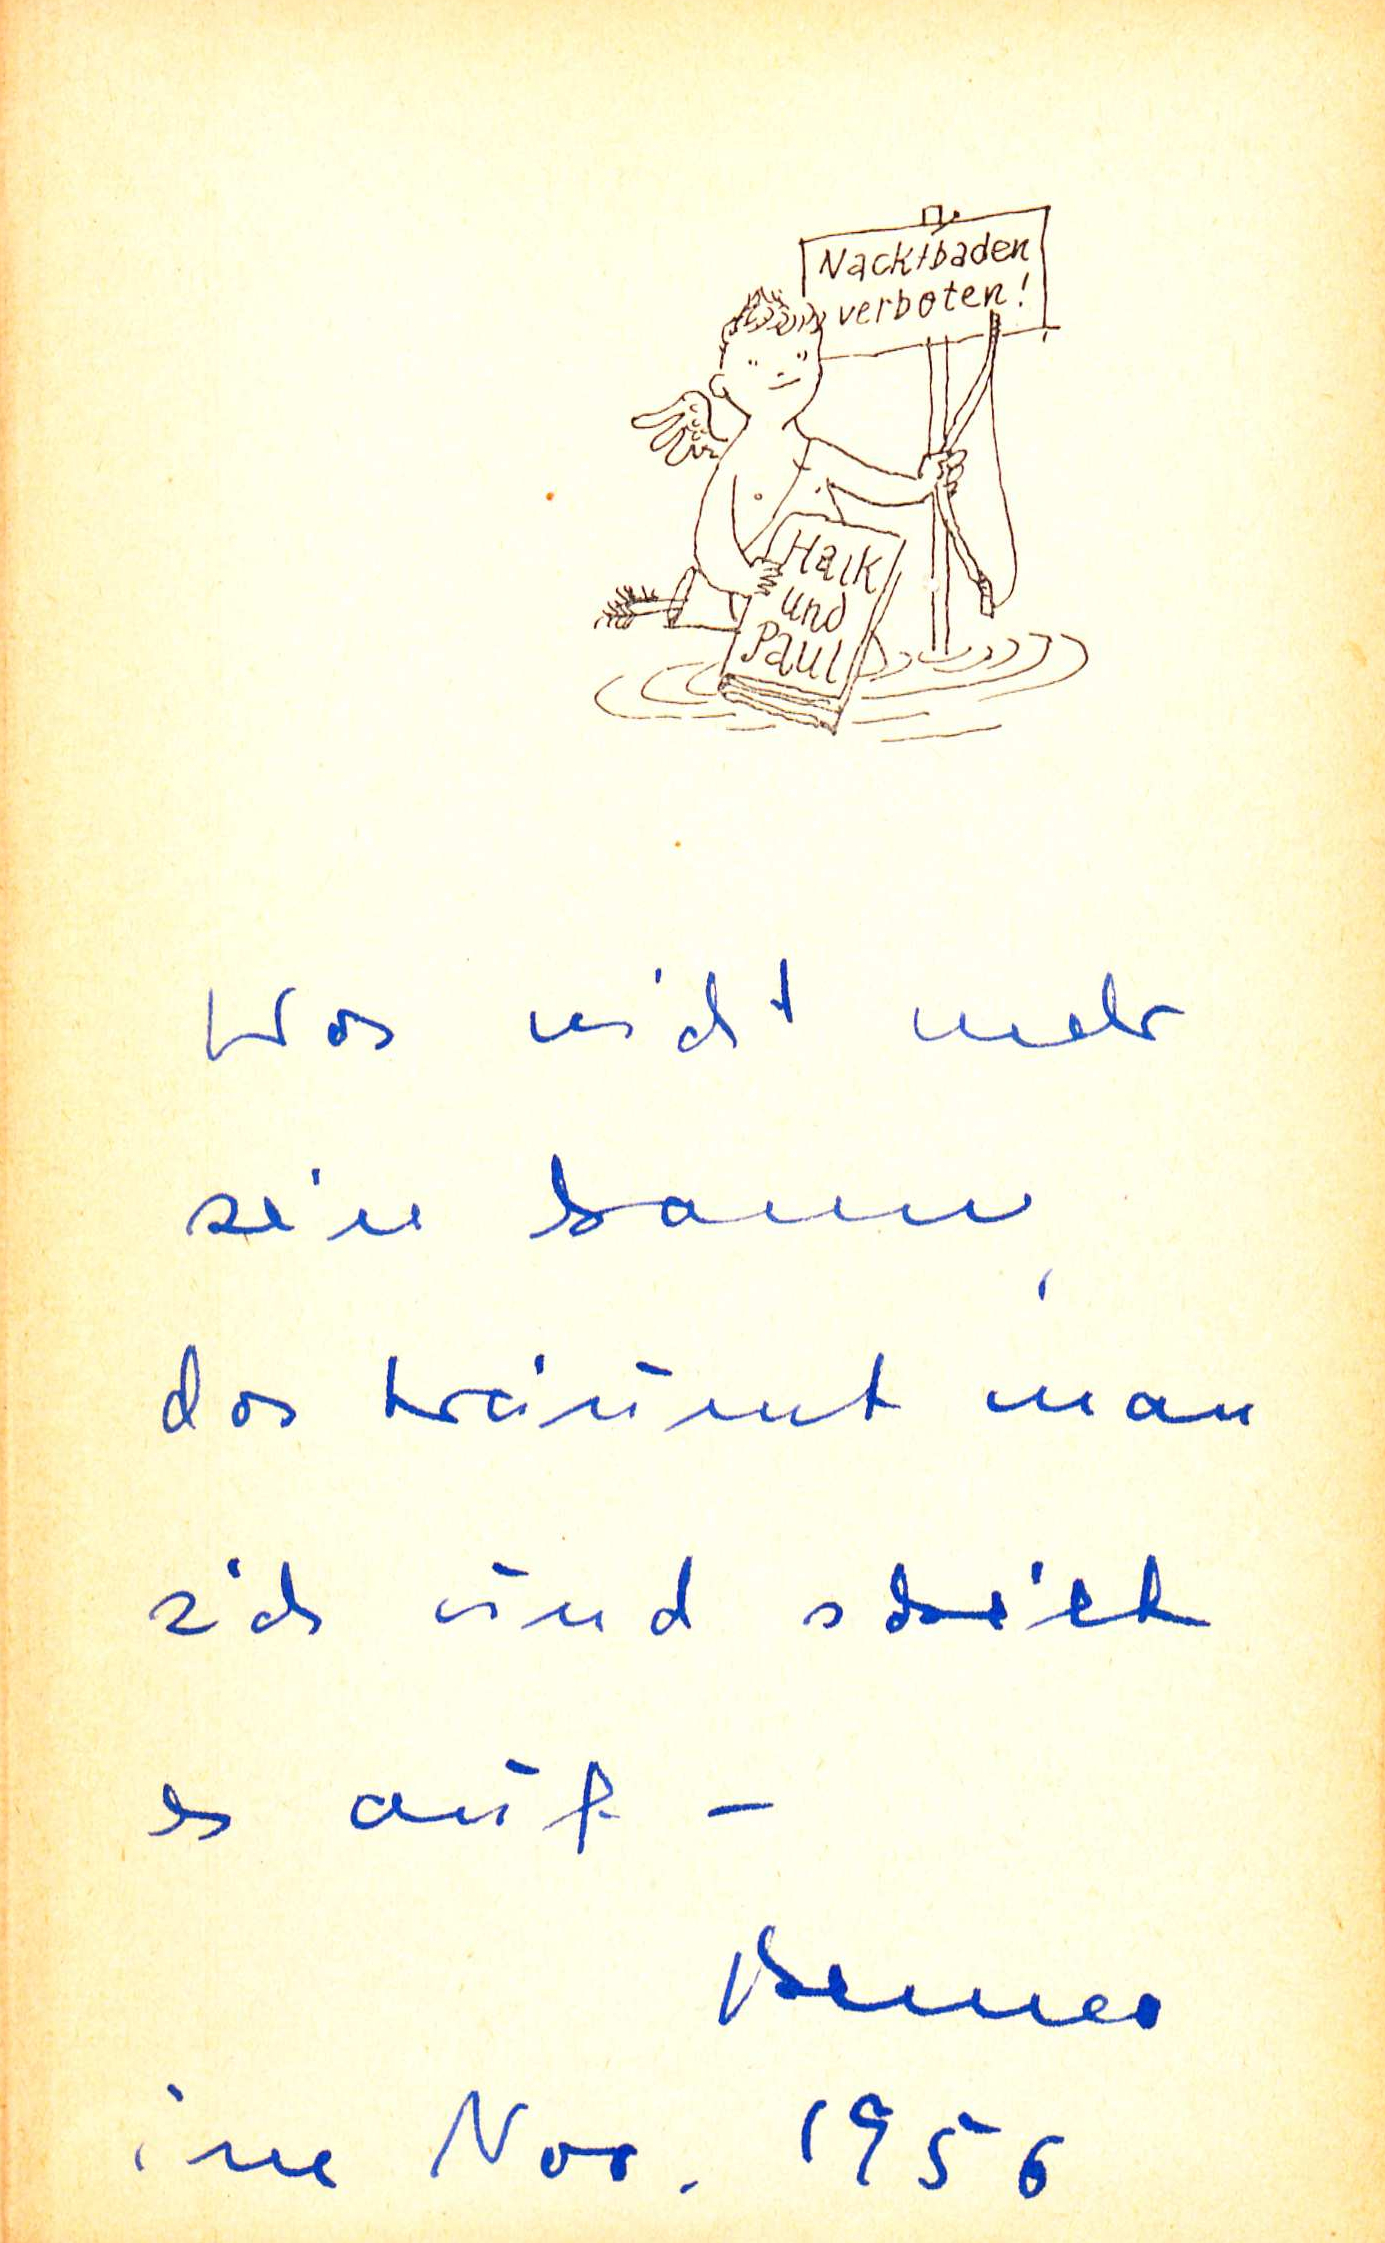 Nacktbaden
verboten!
Haik
und
Paul
Was nicht mehr
sein kann,
das träumt man
sich und schreibt
es auf –
Benno
im Nov. 1956